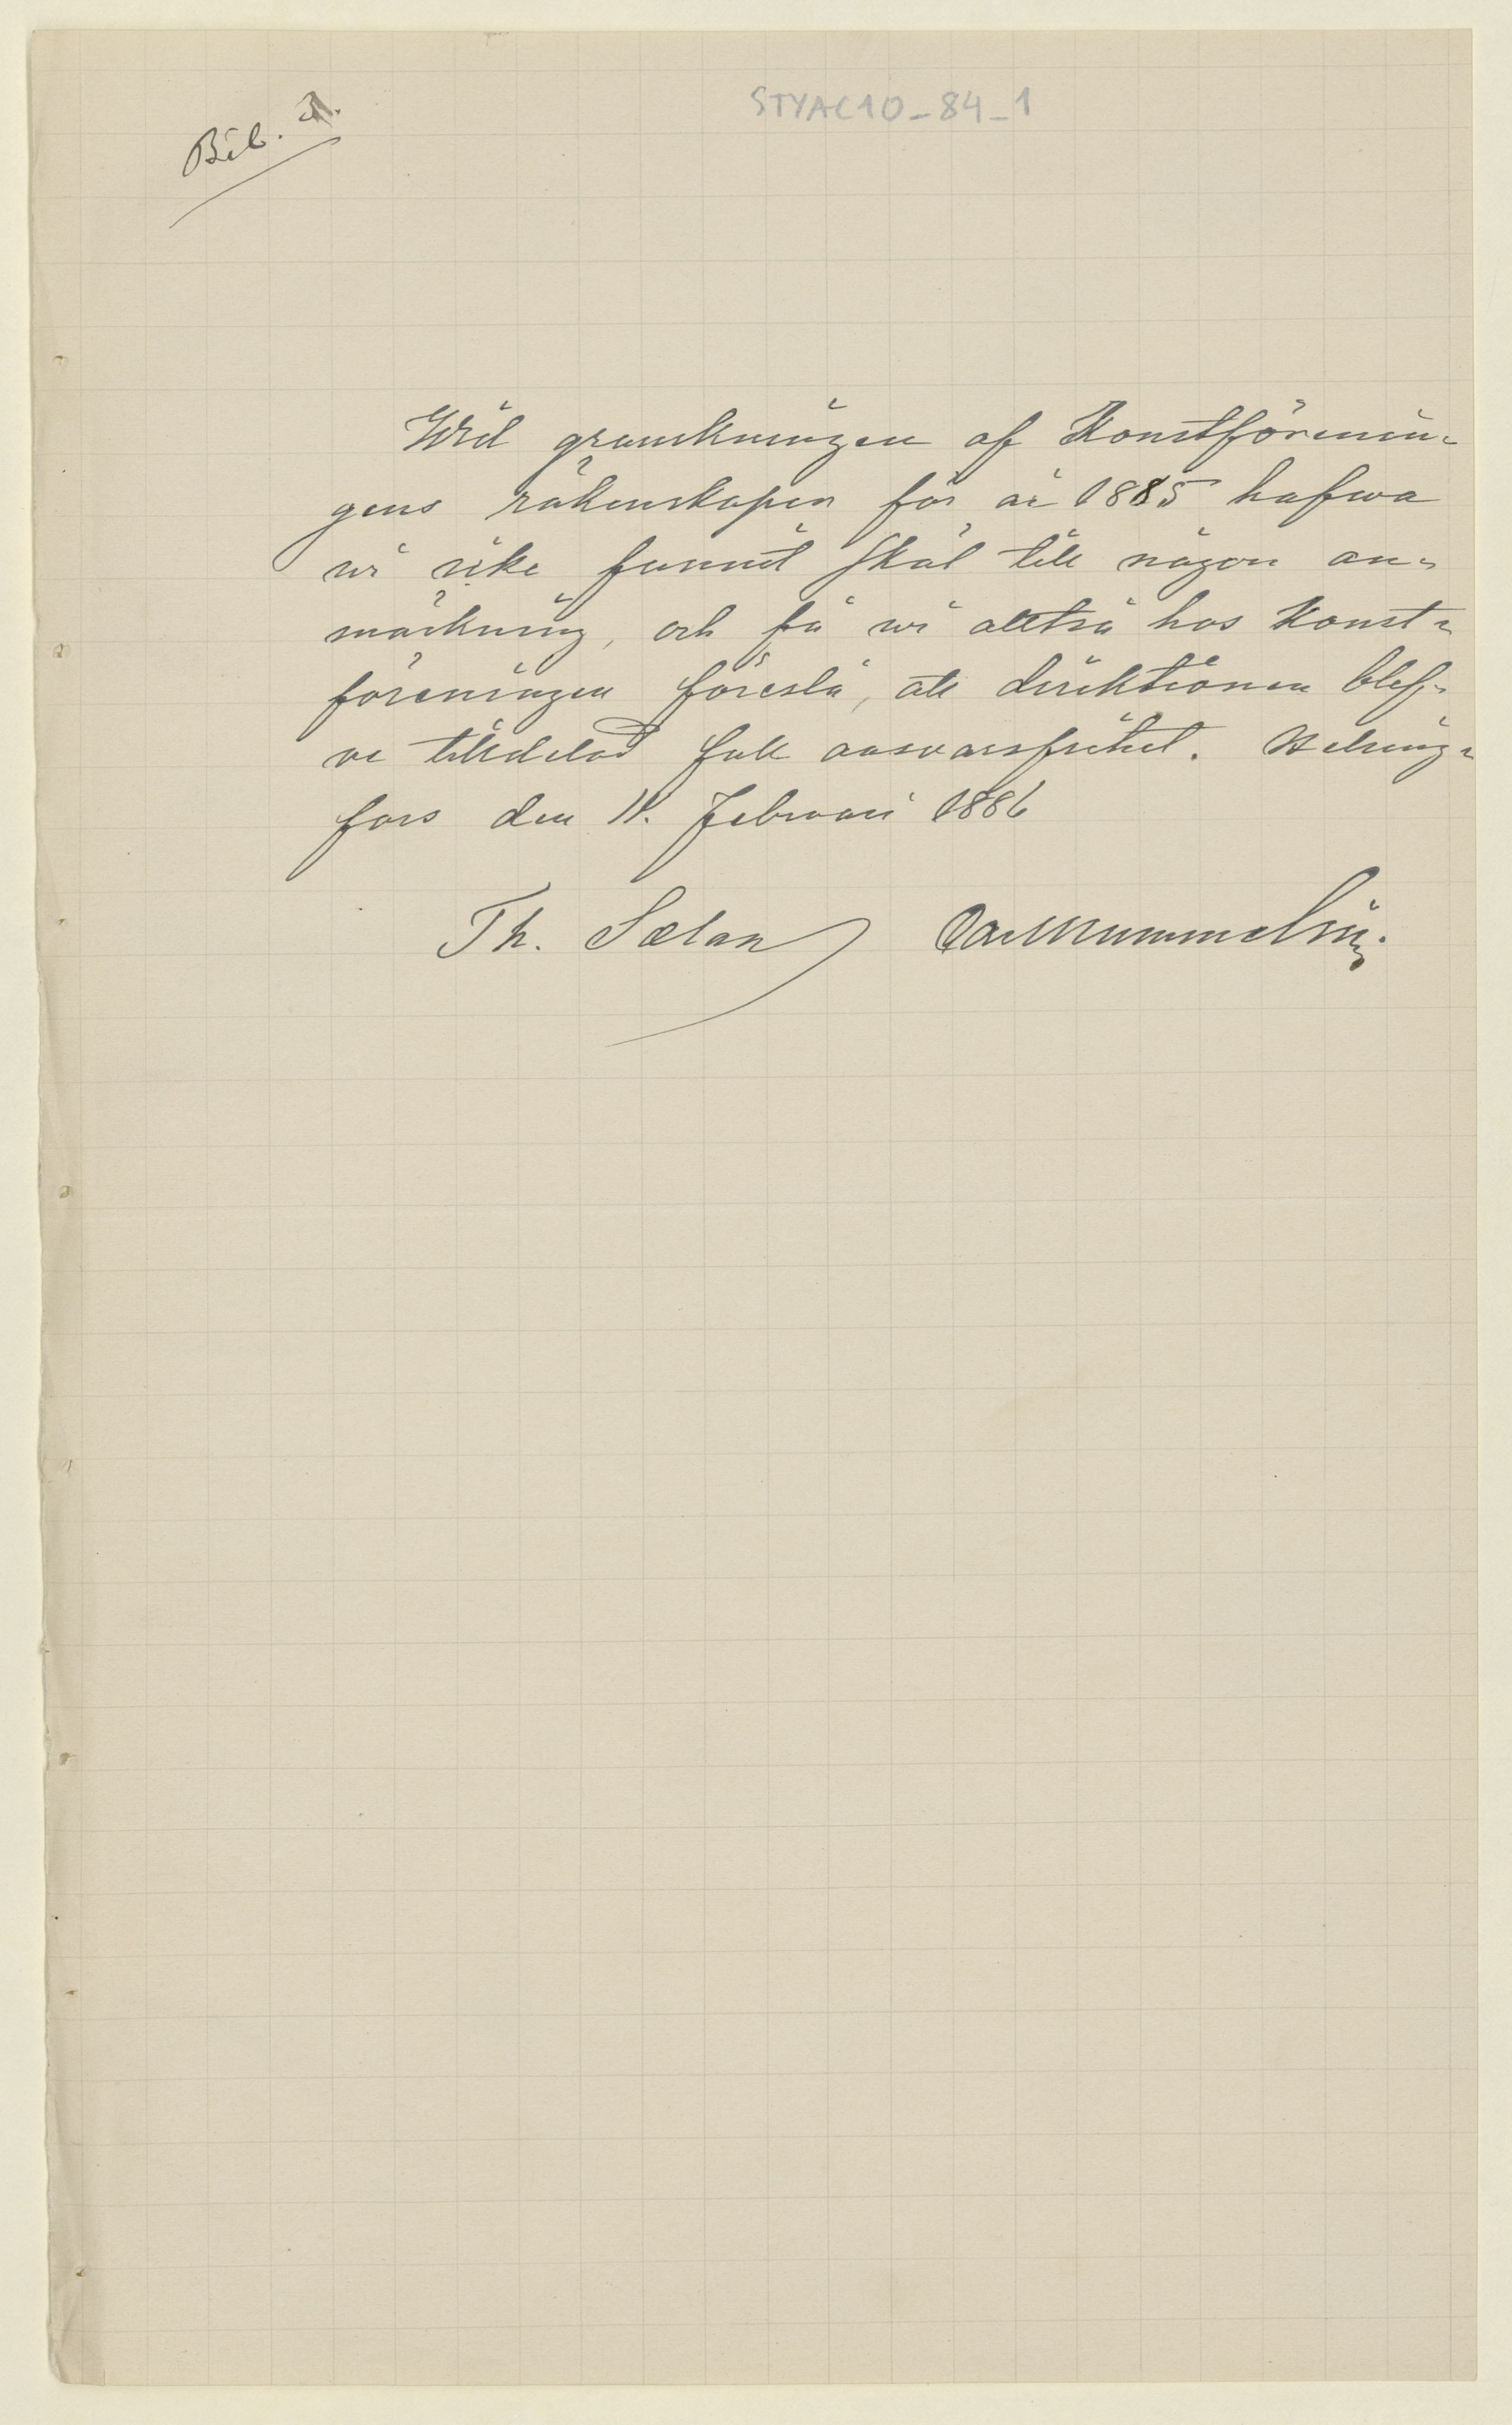 STYAC10_84_1
Bil.
Wid granskningen af Konstförenin-
gens räkenskaper för år 1885 hafwa
wi icke funnit skäl till någon an-
märkning, och få wi alltså hos Konst-
föreningen föreslå, att direktionen blef-
ve tilldelad full ansvarsfrihet. Helsing-
fors den 11. Februari 1886
Th. Sælan